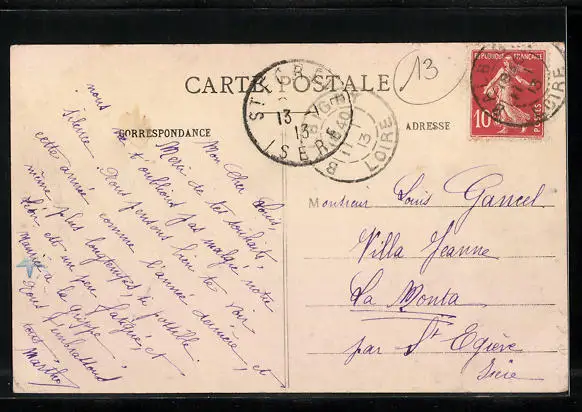 CARTE POSTALE
13
CORRESPONDANCE
ADRESSE
REPUBLIQUE FRANÇAISE
10
POSTES
ST
13
13
ISERE
LOIRE
13
LOIRE
Mon Cher Louis,
Merci de tes souhaits,
nous ne t'oublions pas malgré notre
silence. Nous pensons bien te voir
cette année comme l'année dernière, et
même plus longtemps, si possible.
Léon est un peu fatigué, et
Maurice a la grippe.
Nous t'embrassons
tous Marthe
Monsieur Louis Gancel
Villa Jeanne
La Monta
par St Egrève
Isère